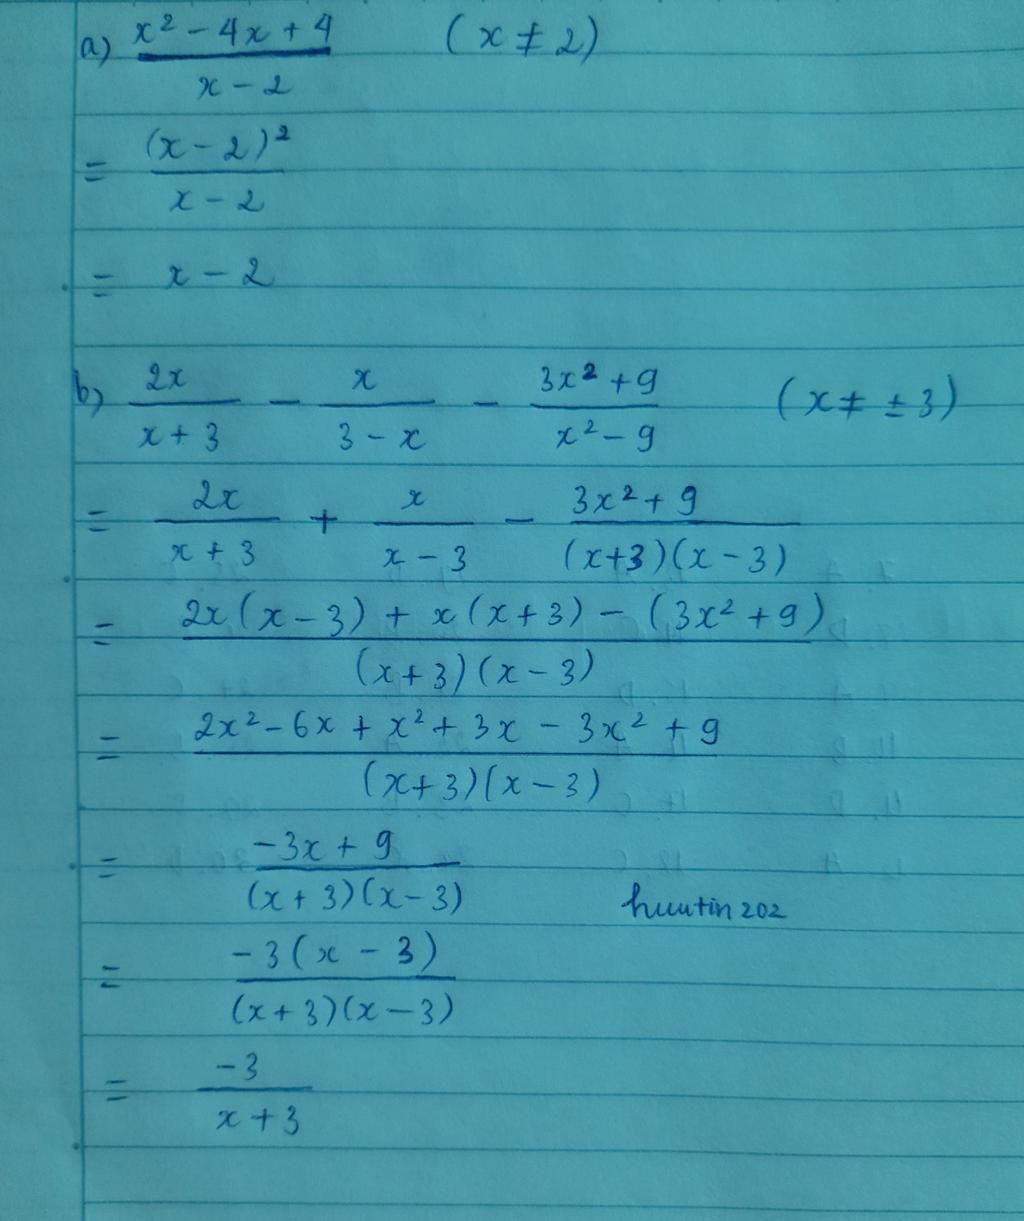 a) x² - 4x + 4 / x - 2 (x ≠ 2)
= (x - 2)² / x - 2
= x - 2
b) 2x / x + 3 - x / 3 - x - 3x² + 9 / x² - 9 (x ≠ ± 3)
= 2x / x + 3 + x / x - 3 - 3x² + 9 / (x+3)(x - 3)
= 2x(x - 3) + x(x + 3) - (3x² + 9) / (x+3)(x - 3)
= 2x² - 6x + x² + 3x - 3x² + 9 / (x+3)(x - 3)
= -3x + 9 / (x + 3)(x - 3)
huutin202
= -3(x - 3) / (x+3)(x - 3)
= -3 / x + 3